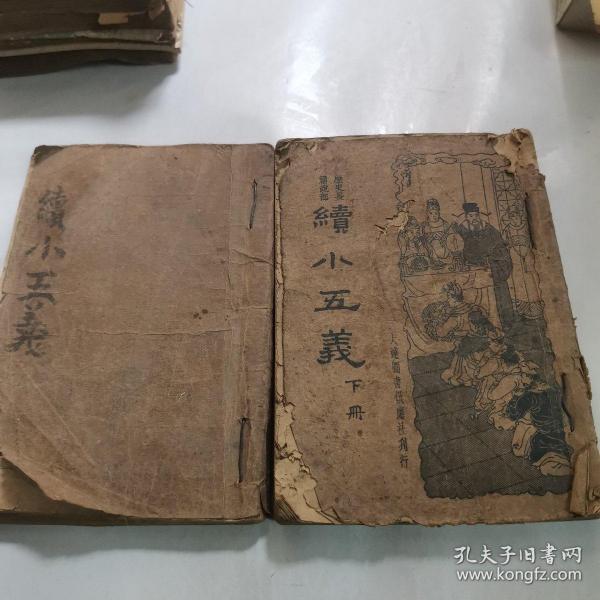 續小五義
歷史長
篇說部
續小五義
下冊
大連圖書供應社刊行
孔夫子旧书网
www.kongfz.com